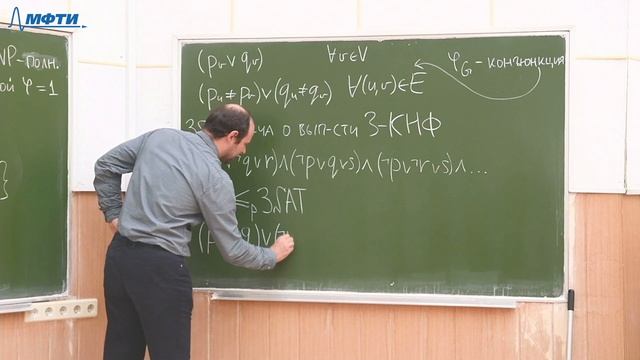 МФТИ
NP-полн.
φ=1
(pᵥ ∨ qᵥ) ∀v∈V
(pᵤ≠pᵥ)∨(qᵤ≠qᵥ) ∀(u,v)∈E
φ_G - конъюнкция
о вып-сти 3-КНФ
q∨r)∧(¬p∨q∨s)∧(¬p∨¬r∨s)∧...
≤ₚ 3SAT